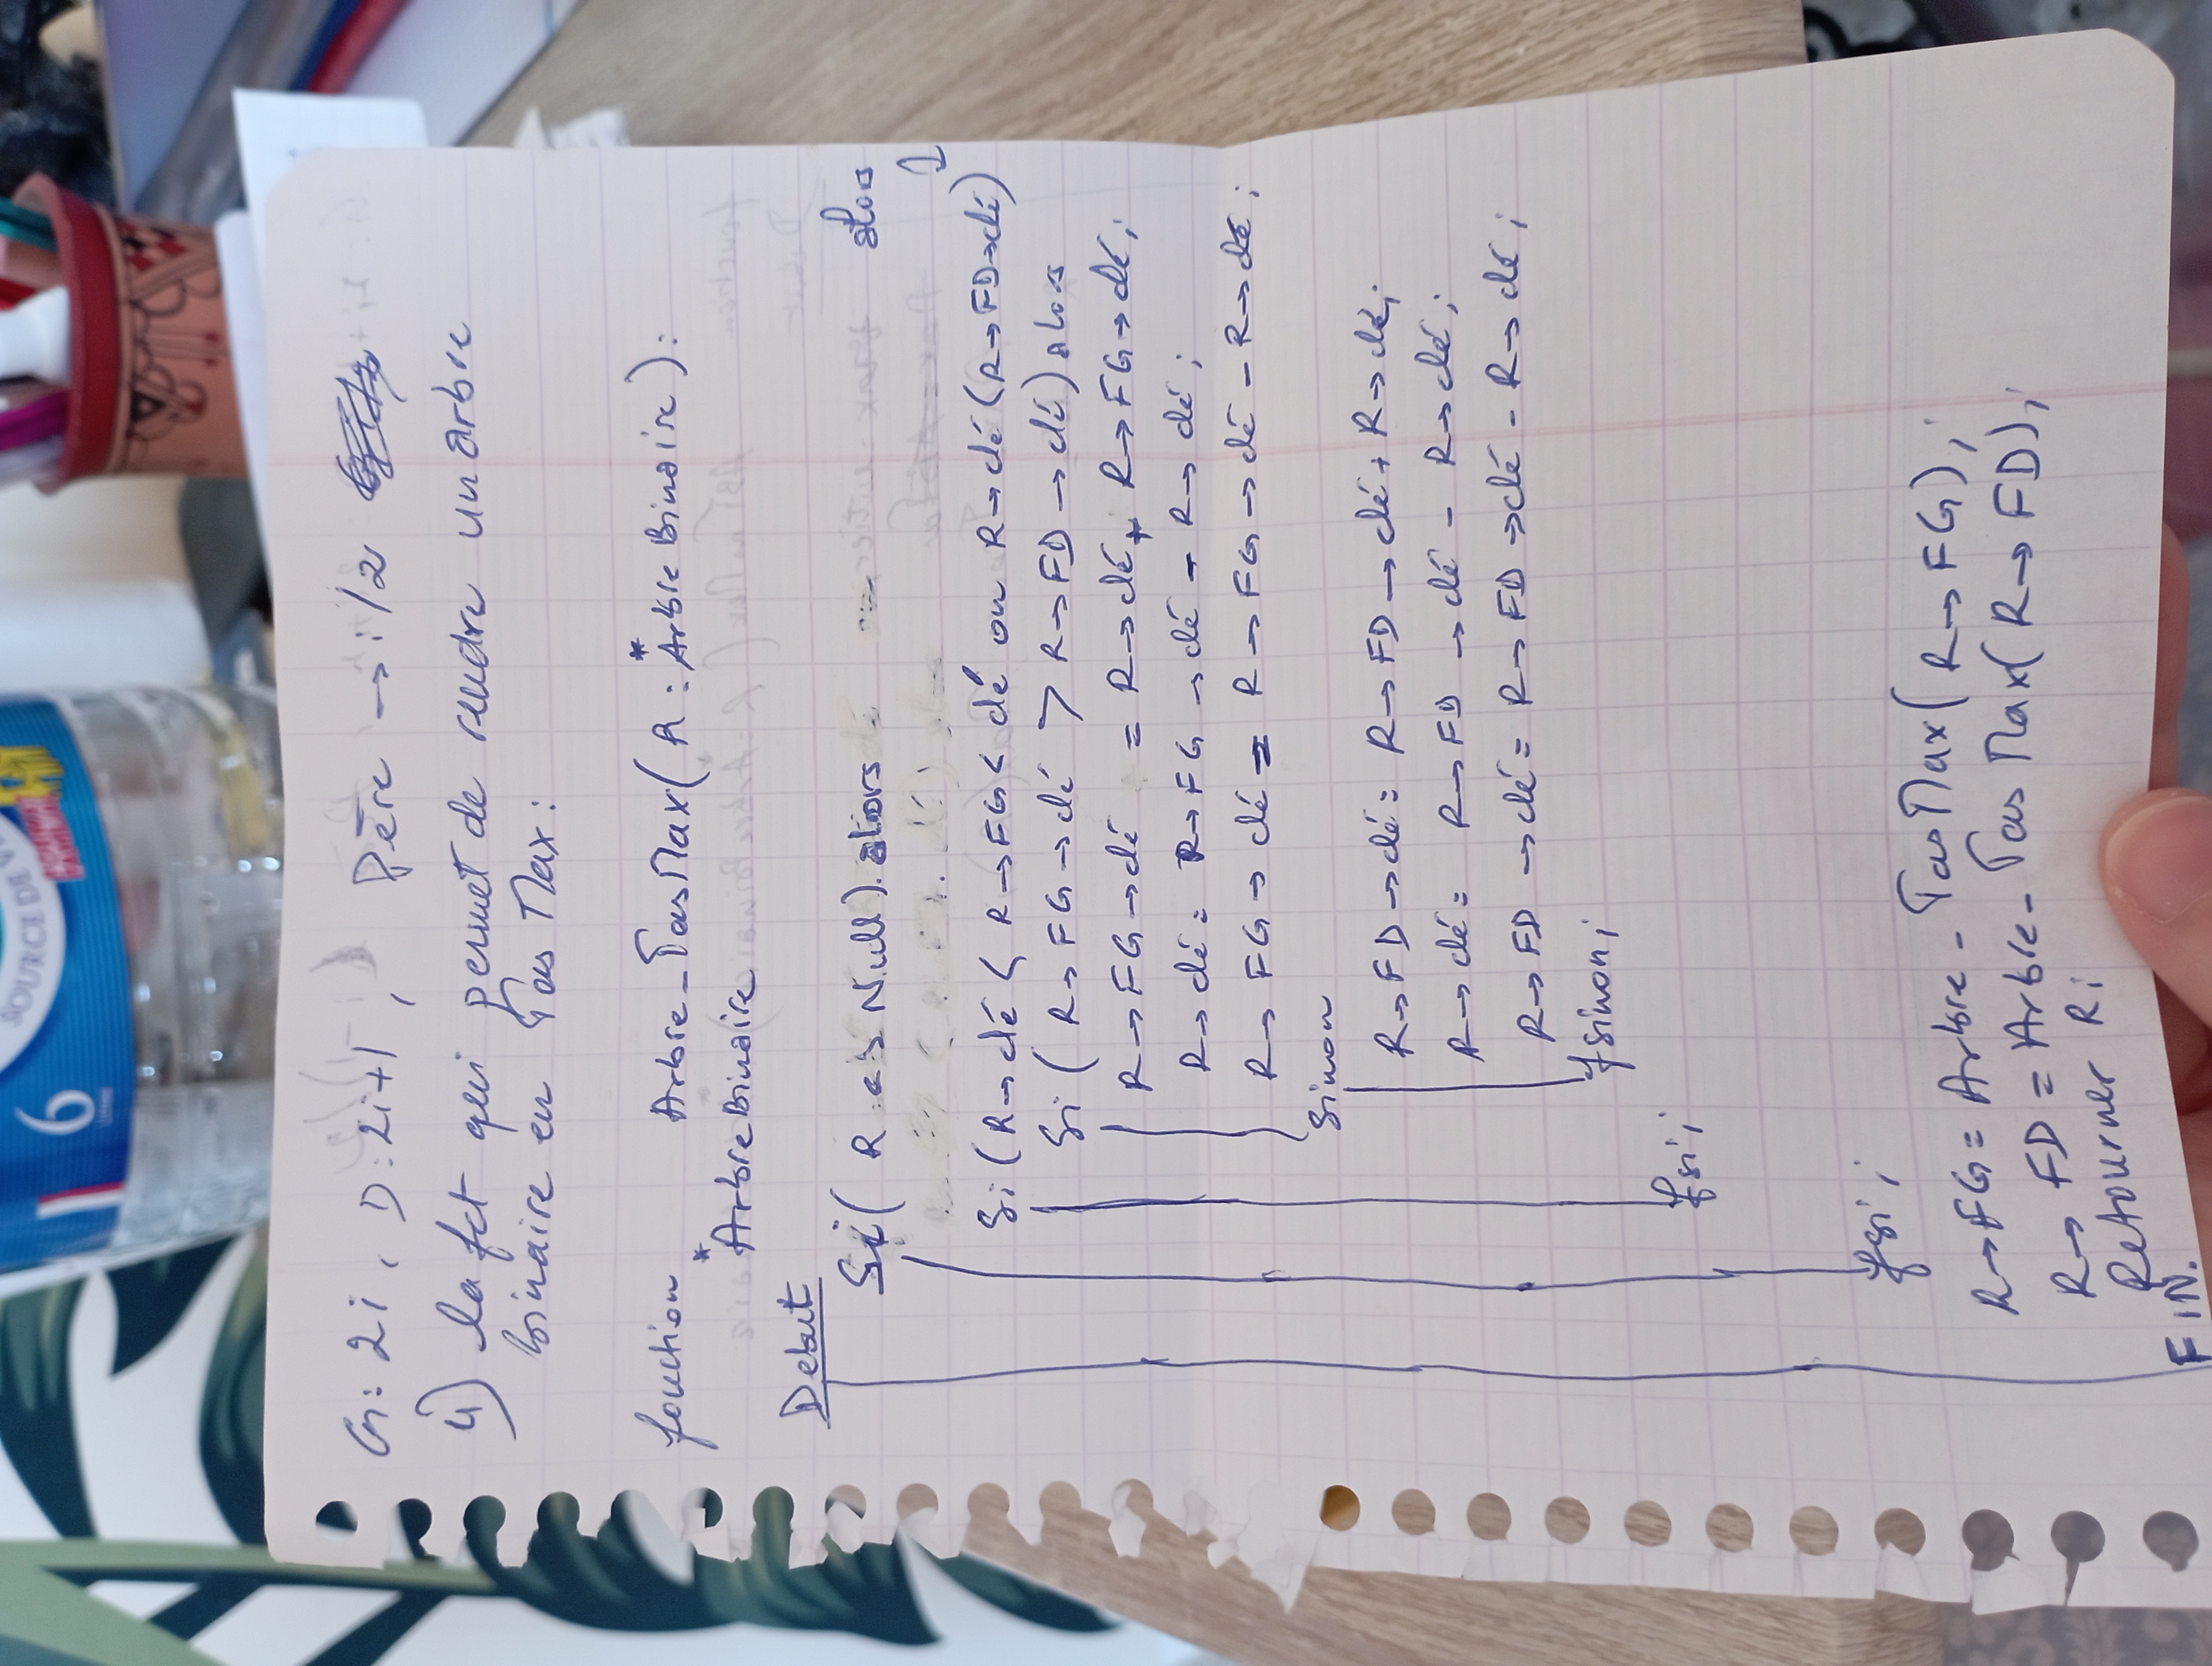 SOURCE DE VI
6
G: 2i, D: 2i+1, Père → i/2
4) la fct qui permet de rendre un arbre
binaire en Tas Max:
fonction Arbre_TasMax(R : *ArbreBinaire):
*ArbreBinaire
Debut
Si( R <> Null). alors
alors
Si (R→clé < R→FG< clé ou R→clé <R→FD→clé)
Si ( R→FG→clé > R→FD→clé) alors
R→FG→clé = R→clé + R→FG→clé;
R→clé = R→FG→clé - R→clé;
R→FG→clé = R→FG→clé - R→clé;
Sinon
R→FD→clé = R→FD→clé + R→clé;
R→clé = R→FD→clé - R→clé;
R→FD→clé = R→FD→clé - R→clé;
fsinon;
fsi;
fsi;
R→FG = Arbre_TasMax(R→FG);
R→FD = Arbre_TasMax(R→FD);
Retourner R;
FIN.